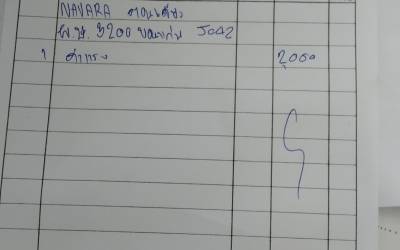 NAVARA ตอนเดียว
ผ.ษ. 3200 ขอนแก่น 5042
1 ค่าแรง 2,000